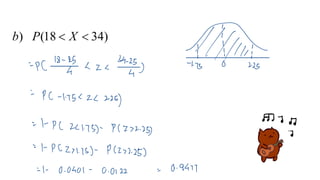 b) P(18 < X < 34)
= P( 18-25/4 < Z < 34-25/4 )
-1.75 0 2.25
= P( -1.75 < Z < 2.25)
= 1- P( Z<-1.75) - P(Z>2.25)
= 1- P( Z>1.75) - P(Z>2.25)
= 1- 0.0401 - 0.0122 = 0.9477